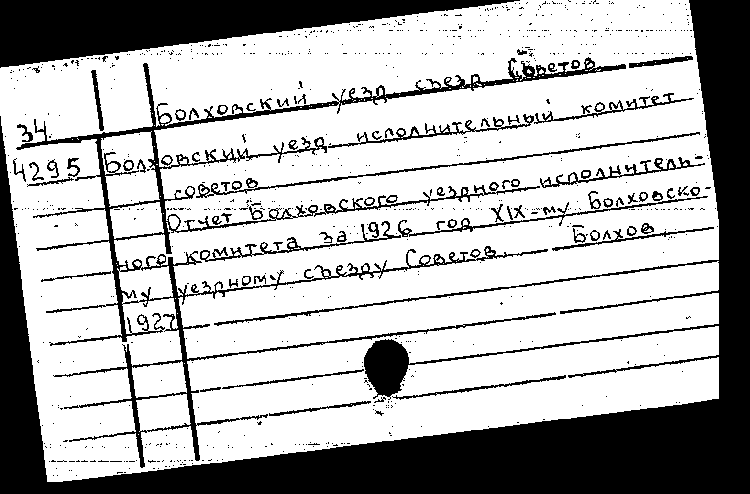 Болховский уезд съезд Советов
34.
4295 Болховский уезд исполнительный комитет
советов
Отчет Болховского уездного исполнитель-
ного комитета за 1926 год XIX-му Болховско-
му уездному съезду Советов. Болхов,
1927